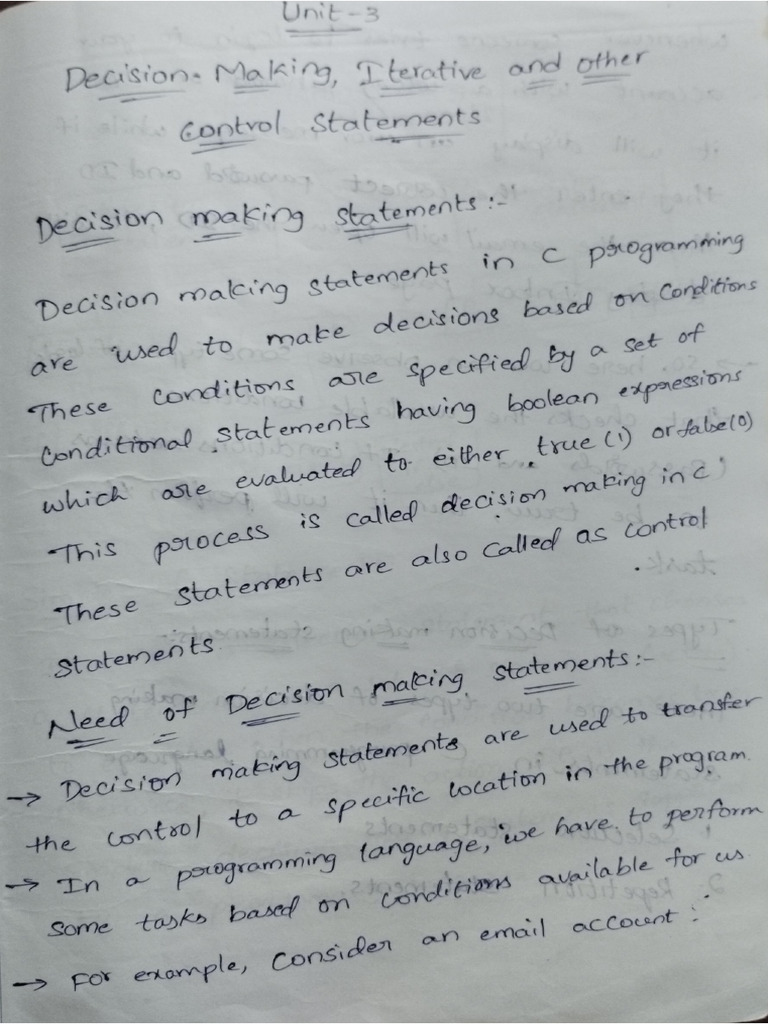 Unit-3
Decision-Making, Iterative and other
Control Statements
Decision making statements:-
Decision making statements in C programming
are used to make decisions based on Conditions
These conditions, are specified by a set of
Conditional statements having boolean expressions
which are evaluated to either true (1) or false(0)
This process is called decision making in C
These statements are also called as control
statements
Need of Decision making statements:-
→ Decision making statements are used to transfer
the control to a specific location in the program.
→ In a programming language, we have to perform
some tasks based on conditions available for us
→ For example, Consider an email account:-